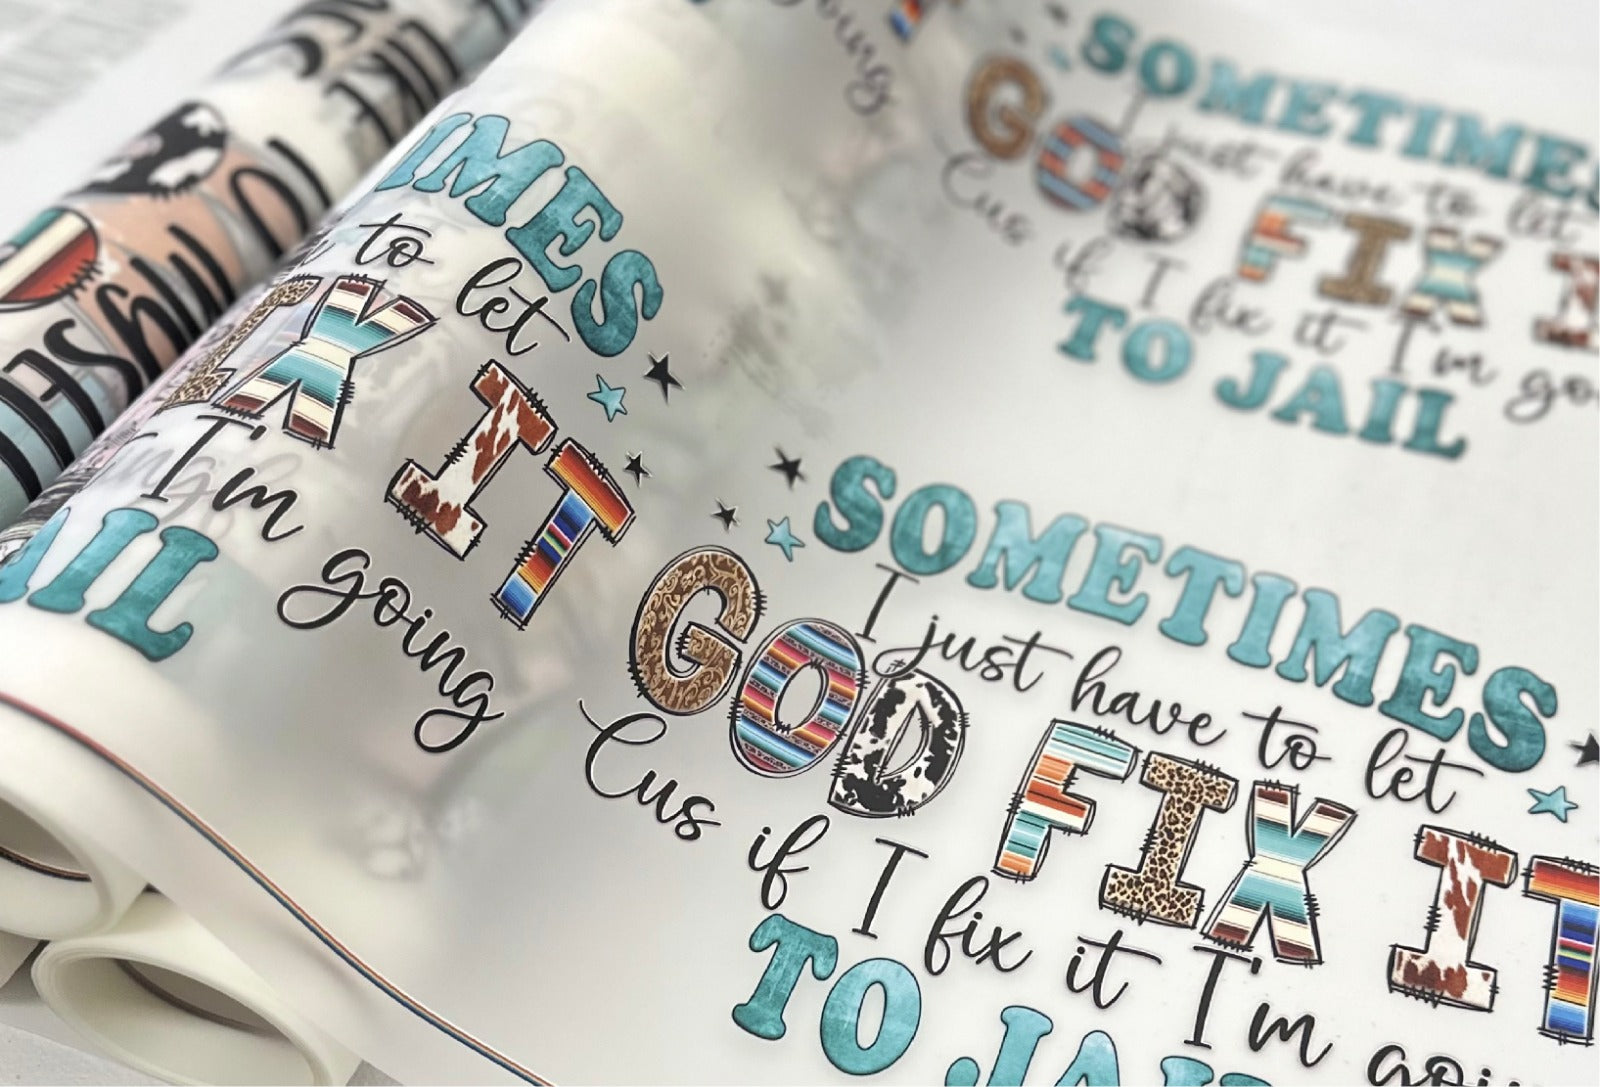 oing IT
SOMETIMES
I just have to let
GOD FIX I
Cus if I fix it I'm go
TO JAIL
IMES
to let
IX IT
I'm going
AIL
SOMETIMES
I just have to let
GOD FIX IT
Cus if I fix it I'm goi
TO JAI